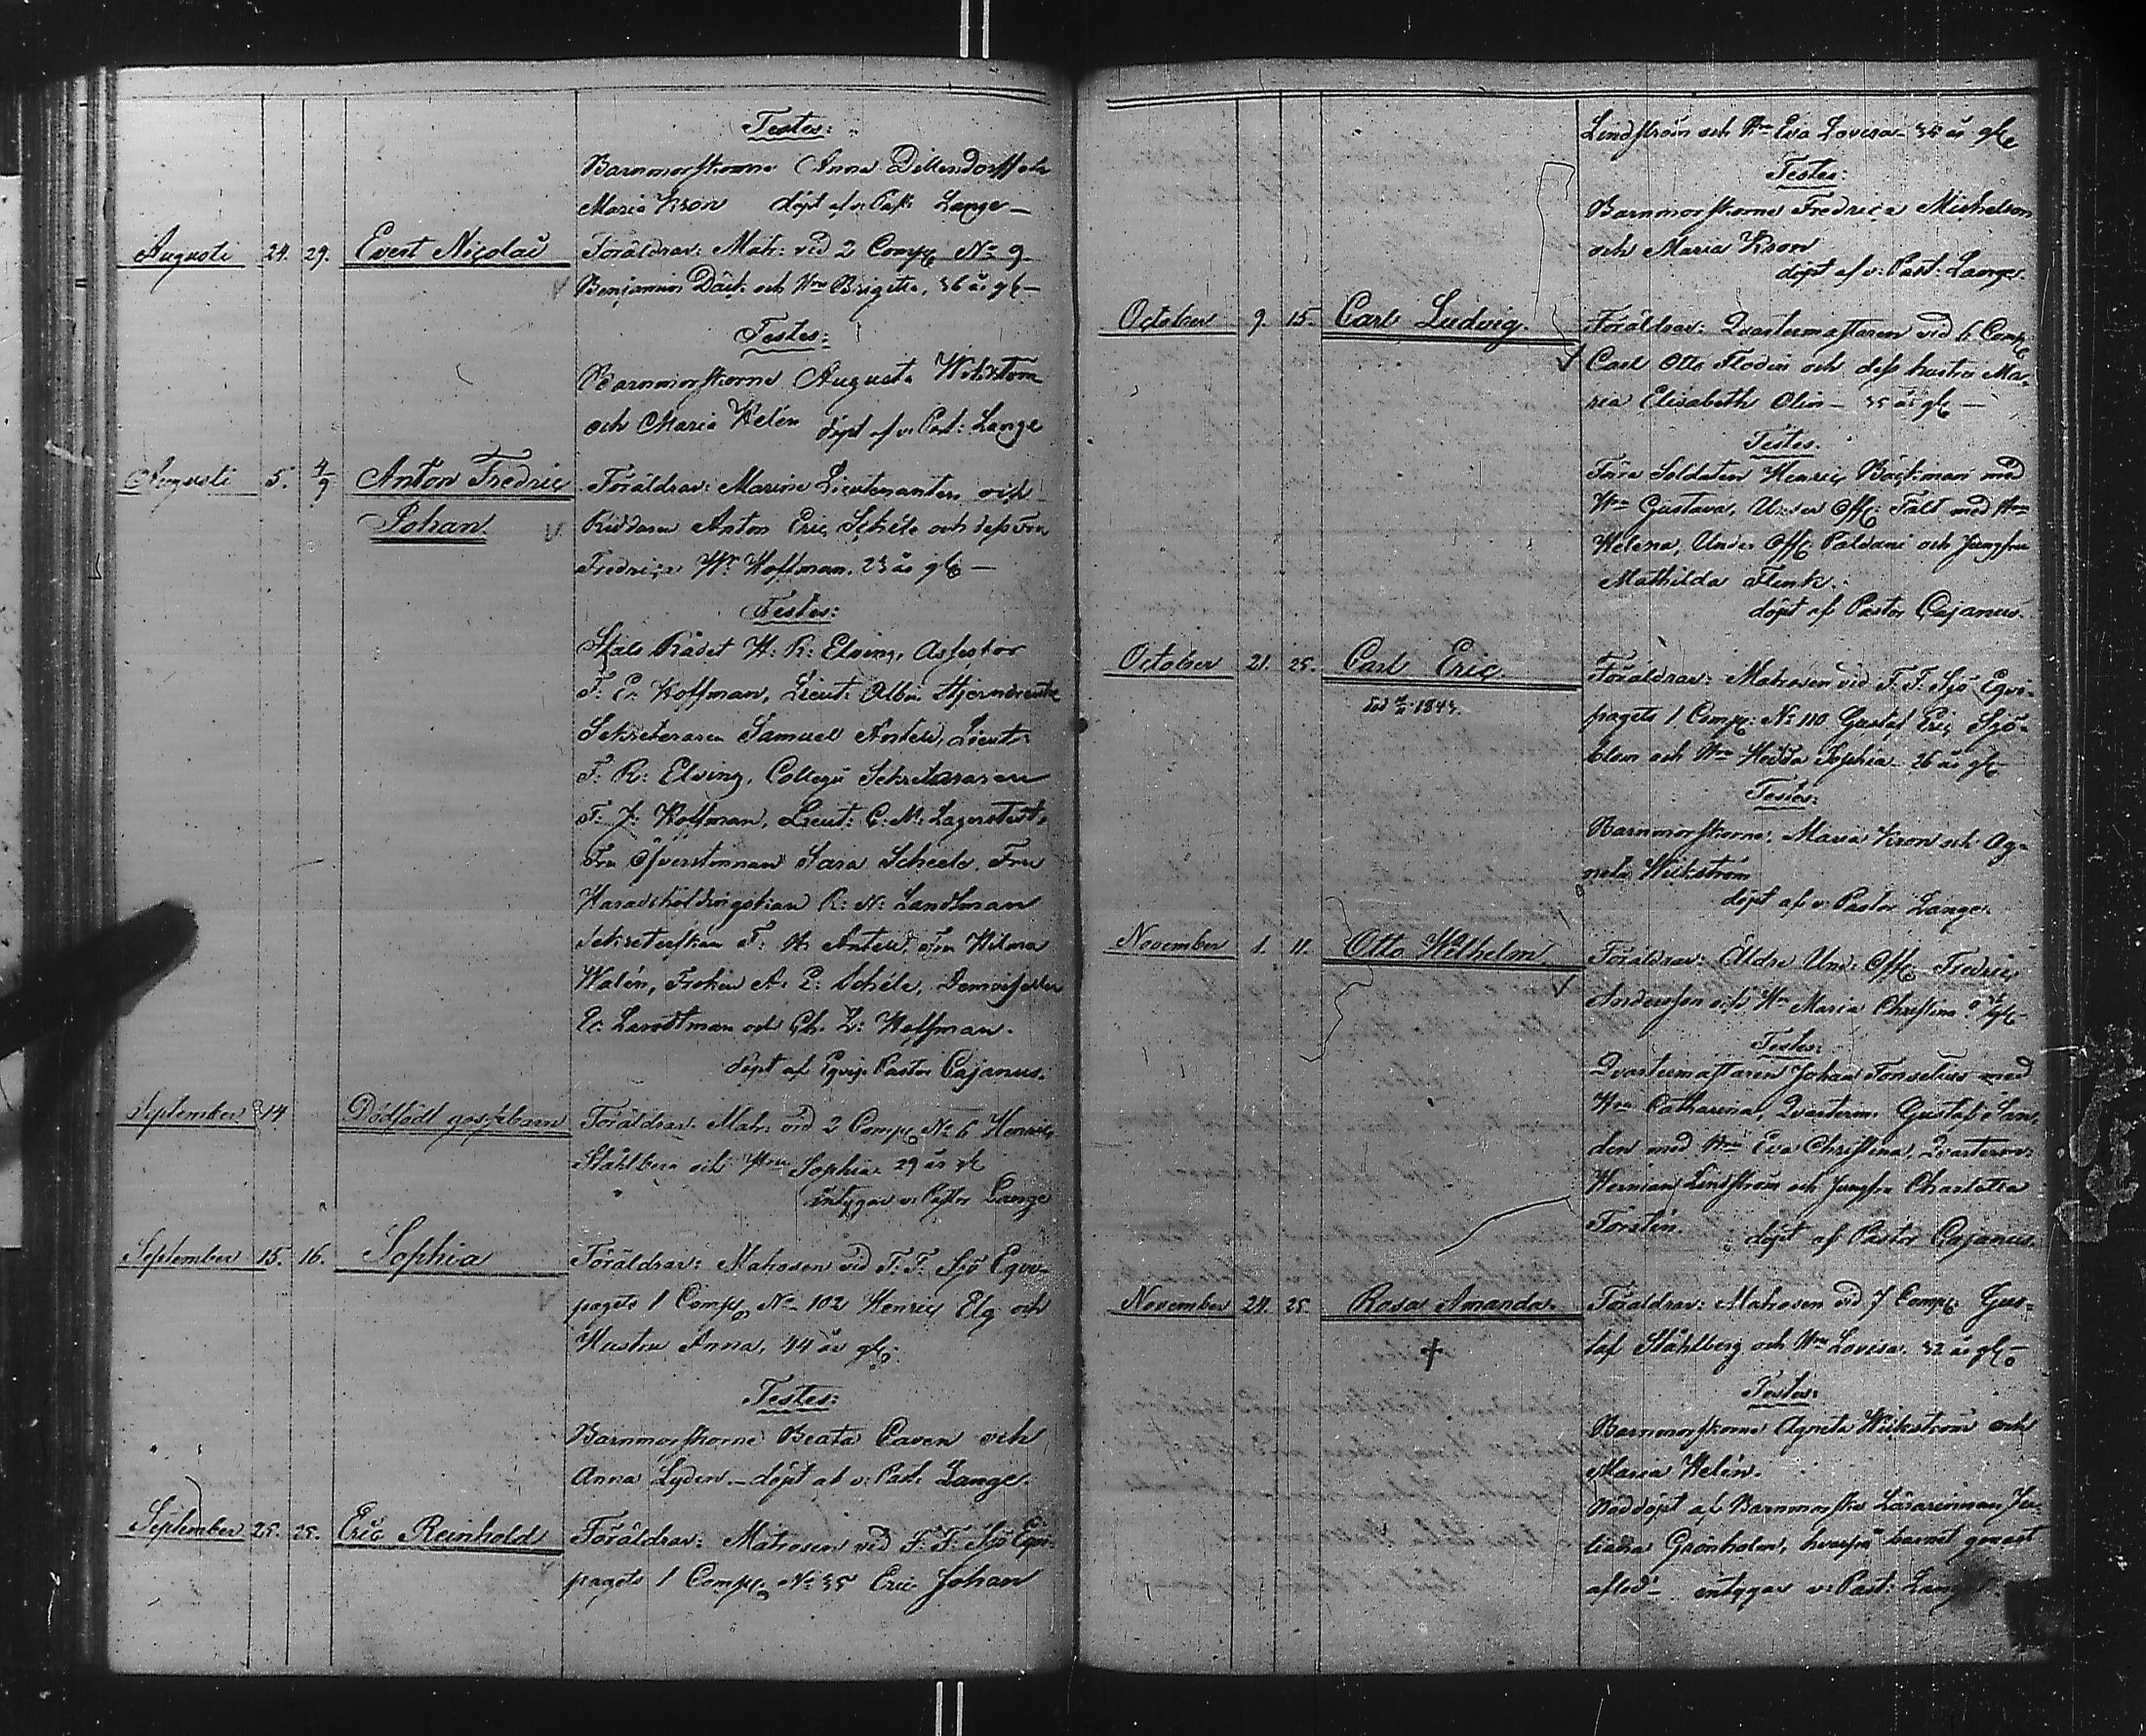 Testes:
Barnmorskorne Anna Dillendorff och
Maria Kron döpt af v: Past: Lange —
Augusti 24. 29. Evert Nicolai Föräldrar: Matr: vid 2 Comp No 9
Benjamin Däck och Hru Brigitta, 36 år gl —
Testes:
Barnmorskorne Augusta Wikström
och Maria Helén döpt af v: Past: Lange
Augusti 5. 4/9 Anton Fredric Föräldrar: Marine Lieutenanten och
Johan. Riddaren Anton Eric Schéle och dess Fru
Fredrica Hoffman. 23 år gl —
Testes:
Stats Rådet H: R: Elving, Assessor
F: E: Hoffman, Lieut: Albin Stjerncreutz
Sekreteraren Samuel Antell, Lieut:
F: R: Elving, Collegii Sekreteraren
F: J: Hoffman, Lieut: C: M: Lagerstedt,
Fru Öfverstinnan Sara Scheele, Fru
Häradshöfdingskan R: N: Landtman
Sekreterskan F: H: Antell, Fru Wilma
Walén, Fröken A: E: Schéle, Demoiseller
E: Landtman och Ch. L: Hoffman.
döpt af Eqvip: Pastor Cajanus.
September 14 Dödfödt gossebarn Föräldrar: Matr: vid 2 Comp No 6 Henric
Ståhlberg och Hru Sophia 29 år gl
intygar v: Pastor Lange
September 15. 16. Sophia Föräldrar: Matrosen vid F: F: Sjö Eqvi-
pagets 1 Comp No 102 Henric Elg och
Hustru Anna, 44 år gl.
Testes:
Barnmorskorne Beata Caven och
Anna Lydén — döpt af v: Past: Lange.
September 25. 25. Eric Reinhold Föräldrar: Matrosen vid F: F: Sjö Eqvi-
pagets 1 Comp No 35 Eric Johan
Lindström och Hru Eva Lovisa 35 år gl
Testes:
Barnmorskorne Fredrica Michelson
och Maria Kron
döpt af v: Past: Lange.
October 9. 15. Carl Ludvig. Föräldrar: Qvartermästaren vid 6 Comp
Carl Otto Flodin och dess hustru Ma-
ria Elisabeth Olin — 35 år gl —
Testes.
Förre Soldaten Henric Bäckman med
Hru Gustava, Under Off: Fält med Hru
Helena, Under Off Paldani och Jungfru
Mathilda Flink.
döpt af Pastor Cajanus.
October 21. 25. Carl Eric. Föräldrar: Matrosen vid F: F: Sjö Eqvi-
död 1843. pagets 1 Comp: No 110 Gustaf Eric Sjö-
blom och Hru Hedda Sophia 26 år gl
Testes:
Barnmorskorne, Maria Kron och Ag-
neta Wickström
döpt af v: Pastor Lange.
November 1. 11. Otto Wilhelm Föräldrar: Äldre Und: Off Fredric
Andersson och Hru Maria Christina gl
Testes:
Qvartermästaren Johan Fonselius med
Hru Catharina, Qvarterm: Gustaf San-
den med Hru Eva Christina, Qvarterm:
Herman Lindström och Jungfru Charlotta
Forstén. döpt af Pastor Cajanus.
November 24. 25. Rosa Amanda. Föräldrar: Matrosen vid 7 Comp: Gus-
taf Ståhlberg och Hru Lovisa. 32 år gl
Testes:
Barnmorskorne Agneta Wickström och
Maria Helén.
Nöddöpt af Barnmorske Lärarinnan Ju-
liana Grönholm, hvarpå barnet genast
afled — intygar v: Past: Lange